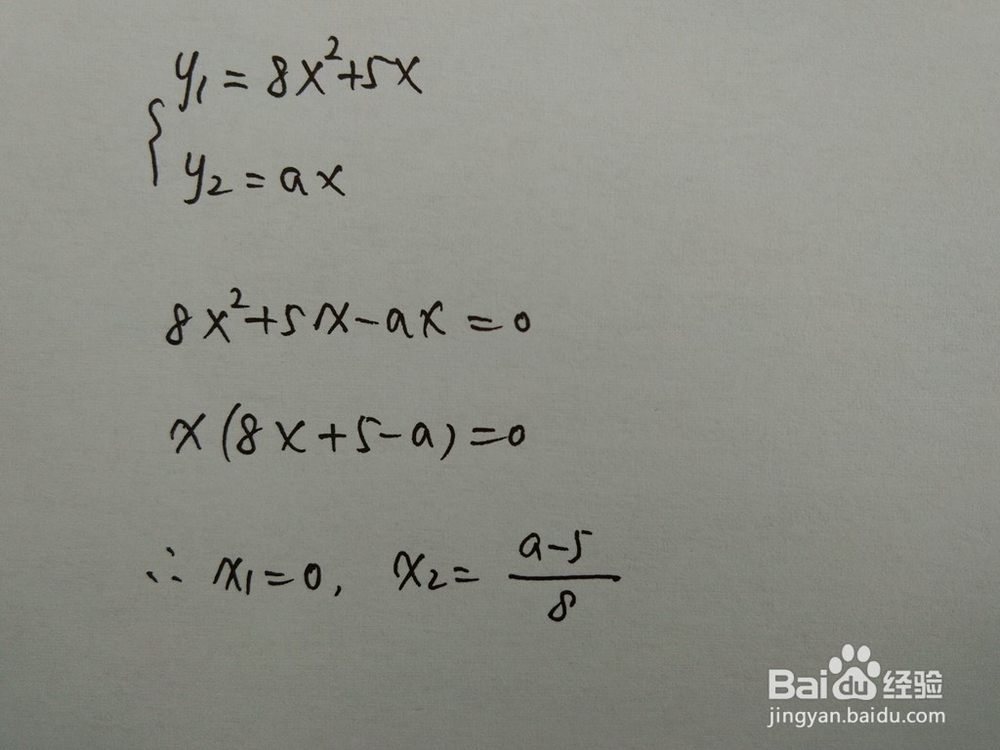 y₁ = 8x²+5x
y₂ = ax
8x²+5x-ax=0
x(8x+5-a)=0
∴ x₁=0, x₂= (a-5)/8
Baidu 经验
jingyan.baidu.com